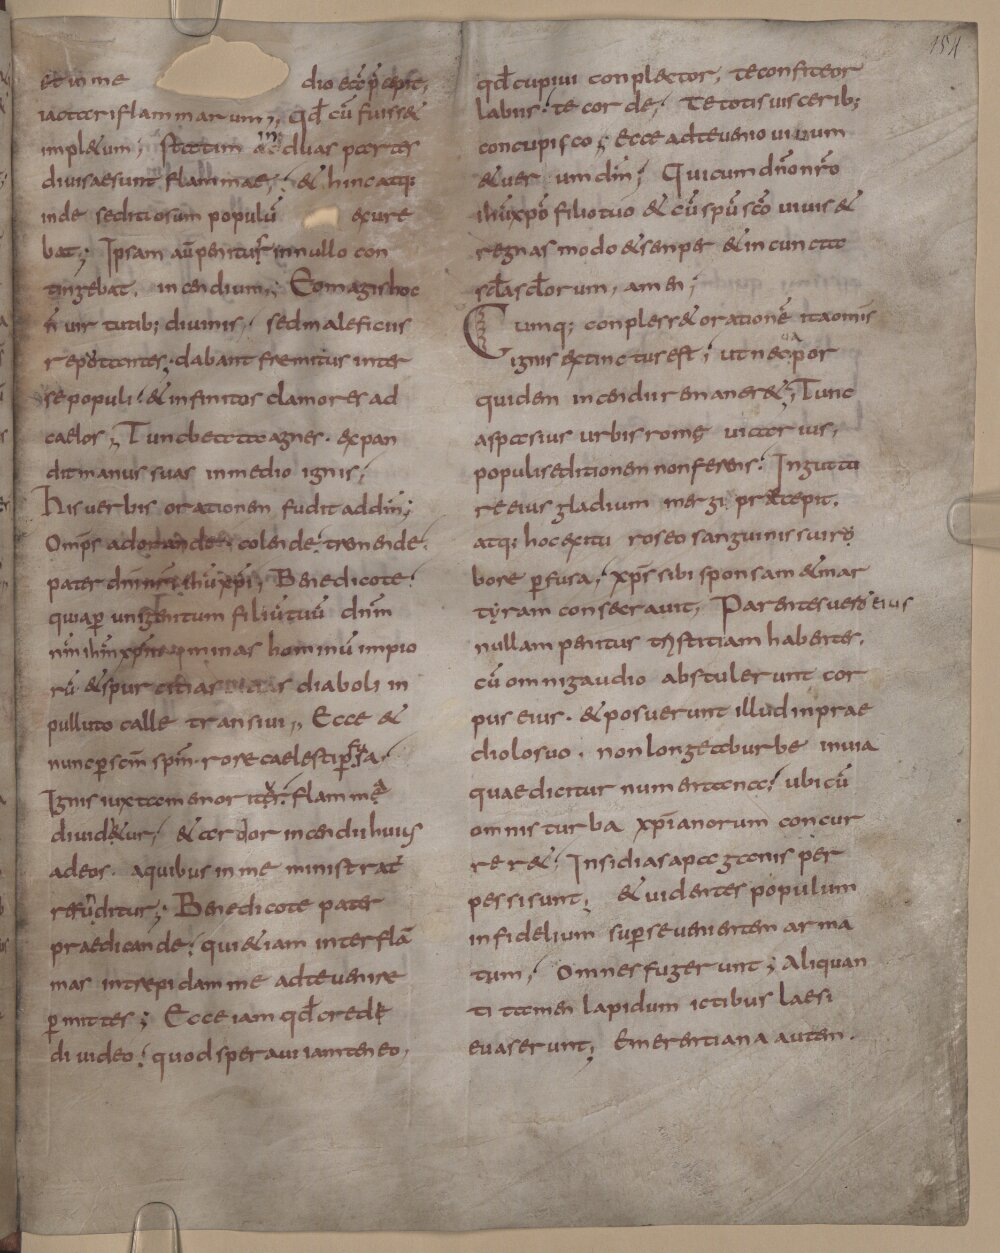 151
et in me dio eor̄ p̄cepit,
iactari flammarum; qđ cū fuisset
impletum, statim in duas partes
divisae sunt flammae; & hinc atq;
inde seditiosum populū exure
bat; Ipsam aū penitus in nullo con
tingebat, incendium; Eo magis hoc
n̄ virtutib; divinis, sed maleficiis
reputantes; dabant fremitus inter
se populi & infinitos clamores ad
caelos; Tunc beata agnes. expan
dit manus suas in medio ignis;
His verbis orationem fudit ad dn̄m;
Omp̄s adorande. colende. tremende.
pater dn̄i nr̄i ihū xp̄i, Benedico te.
quia p̄ unigenitum filiū tuū dn̄m
nr̄m ihm̄ xp̄m minas hominū impio
rū & spurcitias diaboli in
pulluto calle transivi; Ecce &
nunc p̄ sc̄m sp̄m. rore caelesti p̄fusa.
Ignis iuxta me moritur. flamma
dividetur, & ardor incendii huius
ad eos. a quibus in me ministrat
refūditur; Benedico te pater
praedicande; qui etiam inter flā
mas intrepidam me ad te venire
p̄mittes; Ecce iam qđ credi
di video. quod speravi iam teneo,
qđ cupivi conplector, te confiteor
labiis. te corde; Te totis viscerib;
concupisco; Ecce ad te venio vivum
& verum dm̄; Qui cum dn̄o nr̄o
ihū xp̄o filio tuo & cū spū sc̄o vivis &
regnas modo & senper & in cuncta
scđa scđorum, amen;
Cumq; conplesset orationē ita omīs
ignis extinctus est; ut nec vapor
quidem incendii remaneret; Tunc
aspasius urbis rome vicarius,
populi seditionem non ferens. In guttu
re eius gladium mergi praecepit.
atq; hoc exitu roseo sanguinis sui ro
bore p̄fusa, xp̄s sibi sponsam & mar
tyram consecravit, Parentes vero eius
nullam penitus tristitiam habentes.
cū omni gaudio abstulerunt cor
pus eius. & posuerunt illud in prae
diolo suo. non longe ab urbe in via
quae dicitur numentana. ubi cū
omnis turba xp̄ianorum concur
reret. Insidias a paganis per
pessi sunt; & videntes populum
infidelium sup̄ se venientem arma
tum, Omnes fugerunt; Aliquan
ti tamen lapidum ictibus laesi
evaserunt; Emerentiana autem.